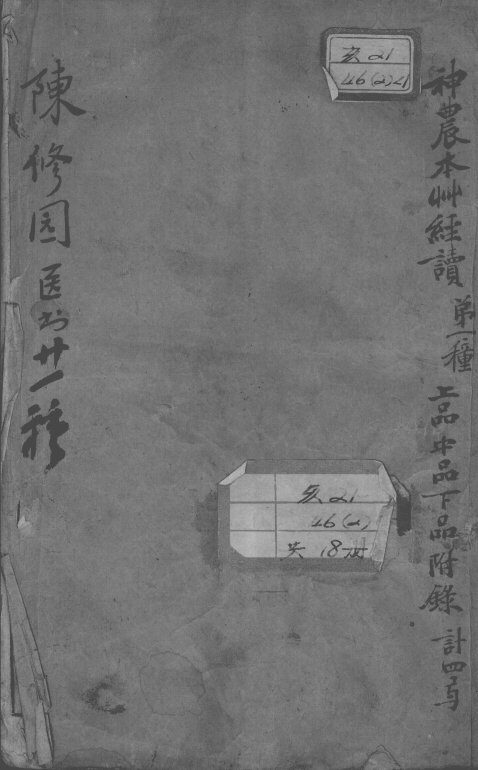 神農本艸經讀 第一種 上品中品下品附錄 計四
亥21
46(2)<1
亥21
46(2)
共18册
陳修园医书廿一種